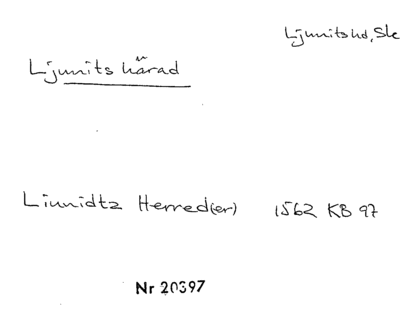 Ljunits hd, Sk
Ljunits härad
Liunidtz Herred(er) 1562 KB 97
Nr 20397